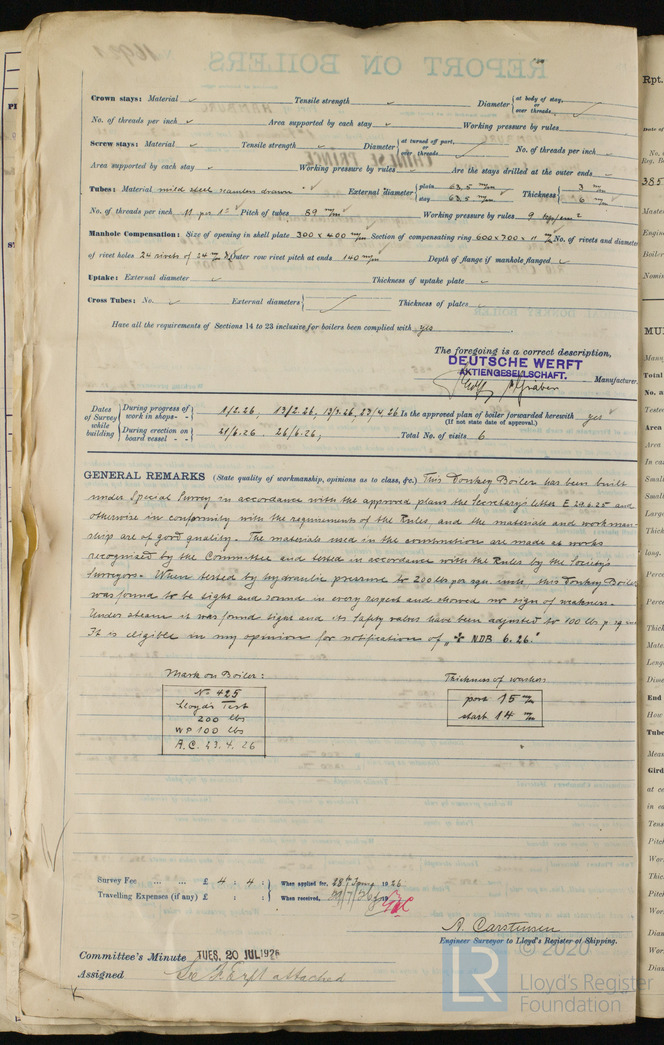 REPORT ON BOILERS
Crown stays: Material ✓ Tensile strength ✓ Diameter { at body of stay, or over threads ✓
No. of threads per inch ✓ Area supported by each stay ✓ Working pressure by rules
Screw stays: Material ✓ Tensile strength ✓ Diameter { at turned off part, or over threads ✓ No. of threads per inch ✓
Area supported by each stay ✓ Working pressure by rules ✓ Are the stays drilled at the outer ends ✓
Tubes: Material mild steel seamless drawn ✓ External diameter { plain 63.5 m/m stay 63.5 m/m ✓ Thickness { 3 m/m 6 m/m
No. of threads per inch 11 per 1" Pitch of tubes 89 m/m Working pressure by rules 9 kg/cm²
Manhole Compensation: Size of opening in shell plate 300 x 400 m/m Section of compensating ring 600 x 700 x 11 m/m No. of rivets and diameter
of rivet holes 24 rivets of 24 m/m Outer row rivet pitch at ends 140 m/m Depth of flange if manhole flanged ✓
Uptake: External diameter ✓ Thickness of uptake plate ✓
Cross Tubes: No. ✓ External diameters { ✓ Thickness of plates ✓
Have all the requirements of Sections 14 to 23 inclusive for boilers been complied with yes
The foregoing is a correct description,
DEUTSCHE WERFT
AKTIENGESELLSCHAFT.
Manufacturer.
Dates of Survey while building
During progress of work in shops - - 1/2.26, 13/2.26, 13/3.26, 23/4.26 Is the approved plan of boiler forwarded herewith yes ✓
(If not state date of approval.)
During erection on board vessel - - 21/6.26. 26/6.26, Total No. of visits 6
GENERAL REMARKS (State quality of workmanship, opinions as to class, &c.) This Donkey Boiler has been built
under Special Survey in accordance with the approved plans the Secretary's letter E 29.6.25 and
otherwise in conformity with the requirements of the Rules, and the materials and workman-
ship are of good quality. The materials used in the construction are made at works
recognised by the Committee and tested in accordance with the Rules by the Society's
Surveyors. When tested by hydraulic pressure to 200 lbs per sqr. inch, this Donkey Boiler
was found to be tight and sound in every respect and showed no sign of weakness.
Under steam it was found tight and its safety valves have been adjusted to 100 lbs p. sq. in
It is eligible in my opinion for notification of "✠ NDB 6.26."
Mark on Boiler: Thickness of washers
No 425 port 15 m/m
Lloyd's Test start 14 m/m
200 lbs
WP 100 lbs
A.C. 23.4.26
Survey Fee ... ... £ 4 : 4 : When applied for, 28th June 1926
Travelling Expenses (if any) £ : : When received, 19
A. Carstensen
Engineer Surveyor to Lloyd's Register of Shipping.
Committee's Minute TUES. 20 JUL 1926
Assigned attached
© 2020
LR
Lloyd's Register
Foundation
Rpt.
385